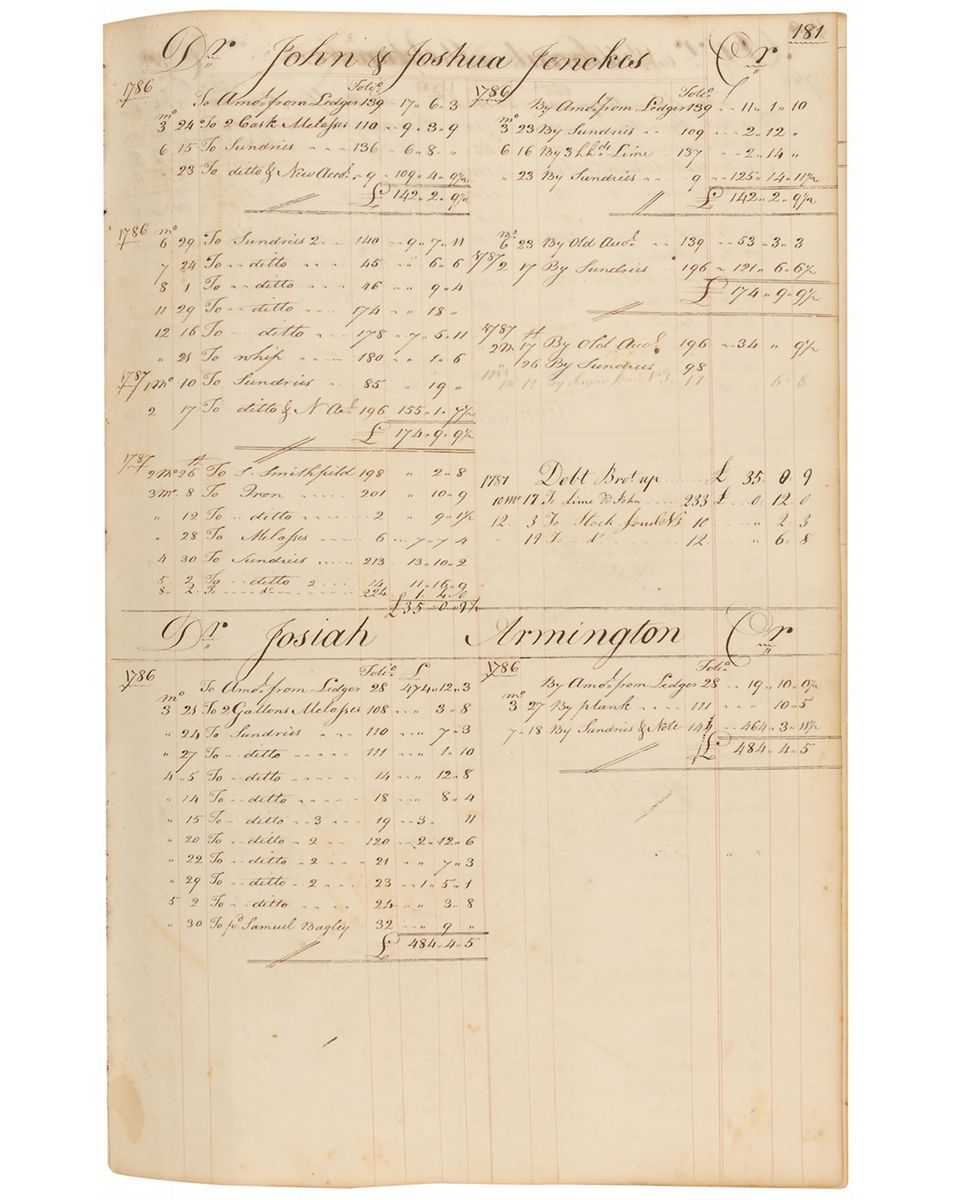 181
Dr John & Joshua Jenckes Cr
1786 Folio
To Amot from Ledger 139 - 17 " 6 " 3
mo 3 24 To 2 Cask Melasses 110 - 9 " 3 " 9
6 15 To Sundries 136 - 6 " 8 "
" 23 To ditto & New Acct 9 - 109 " 4 " 9½
£ 142 " 2 " 9½
1786 Folio
By Amot from Ledger 139 - 11 " 1 " 10
mo 3 23 By Sundries 109 - 2 " 12 "
6 16 By 3 hhds Lime 137 - 2 " 14 "
" 23 By Sundries 9 - 125 " 14 " 11½
£ 142 " 2 " 9½
1786 mo
6 29 To Sundries 2 140 - 9 " 7 " 11
7 24 To ditto 45 " 6 " 6
8 1 To ditto 46 " 9 " 4
11 29 To ditto 174 " 18 "
12 16 To ditto 178 - 7 " 5 " 11
" 21 To whip 180 " 1 " 6
1787 1mo 10 To Sundries 85 " 19 "
2 17 To ditto & N Acct 196 155 " 1 " 7½
£ 174 " 9 " 9½
mo 6 23 By Old Acct 139 - 53 " 3 " 3
1787 2 17 By Sundries 196 - 121 " 6 " 6½
£ 174 " 9 " 9½
1787
2m 17 By Old Acct 196 - 34 " " 9½
" 26 By Sundries 98
17 6 " 8
1787
2mo 26 To S. Smithfield 198 " 2 " 8
3mo 8 To Iron 201 " 10 " 9
" 12 To ditto 2 " 9 " 1½
" 28 To Melasses 6 - 7 " 7 " 4
4 30 To Sundries 213 13 " 10 " 2
5 2 To ditto 2 14 11 " 16 " 9
8 2 To do 224
£35 " 0 " 9½
1787 Debt Brot up £ 35 " 0 " 9
10mo 17 To Lime 233 £ 0 " 12 " 0
12 3 To Stock 10 " 2 " 3
19 To do 12 " 6 " 8
Dr Josiah Armington Cr
1786 Folio £
To Amot from Ledger 28 474 " 12 " 3
mo 3 21 To 2 Gallons Melasses 108 " 3 " 8
" 24 To Sundries 110 " 7 " 3
" 27 To ditto 111 " 1 " 10
4 5 To ditto 14 " 12 " 8
" 14 To ditto 18 " 8 " 4
" 15 To ditto 3 19 - 3 " 11
" 20 To ditto 2 120 - 2 " 12 " 6
" 22 To ditto 2 21 " 7 " 3
" 29 To ditto 2 23 - 1 " 5 " 1
5 2 To ditto 24 " 3 " 8
" 30 To pd Samuel Bagley 32 " 9 "
£ 484 " 4 " 5
1786 Folio
By Amot from Ledger 28 - 19 " 10 " 0½
mo 3 27 By plank 111 " 10 " 5
7 18 By Sundries & Note 144 - 464 " 3 " 11½
£ 484 " 4 " 5